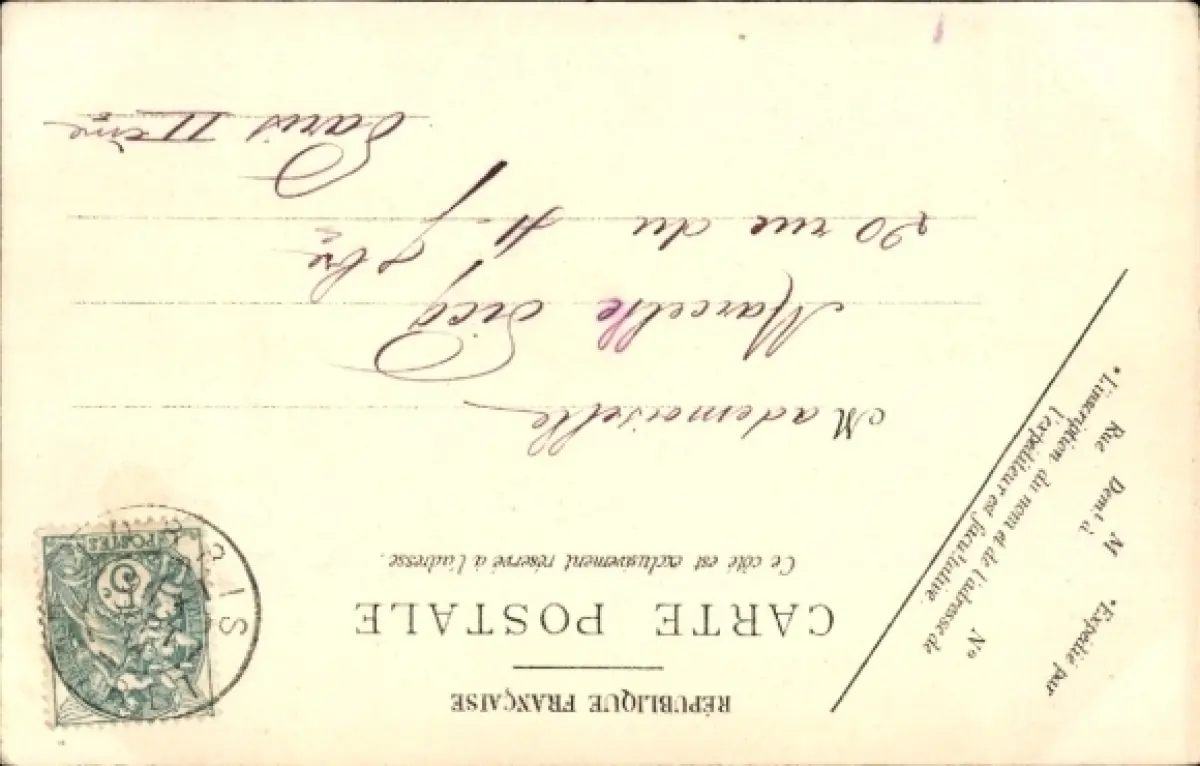 RÉPUBLIQUE FRANÇAISE
CARTE POSTALE
Ce côté est exclusivement réservé à l'adresse.
*Expédié par
M
Demt à
Rue
N°
*L'inscription du nom et de l'adresse de
l'expéditeur est facultative.
POSTES
5
IS
Mademoiselle
Marcelle Picq
20 rue du 4 7bre
Paris IIème